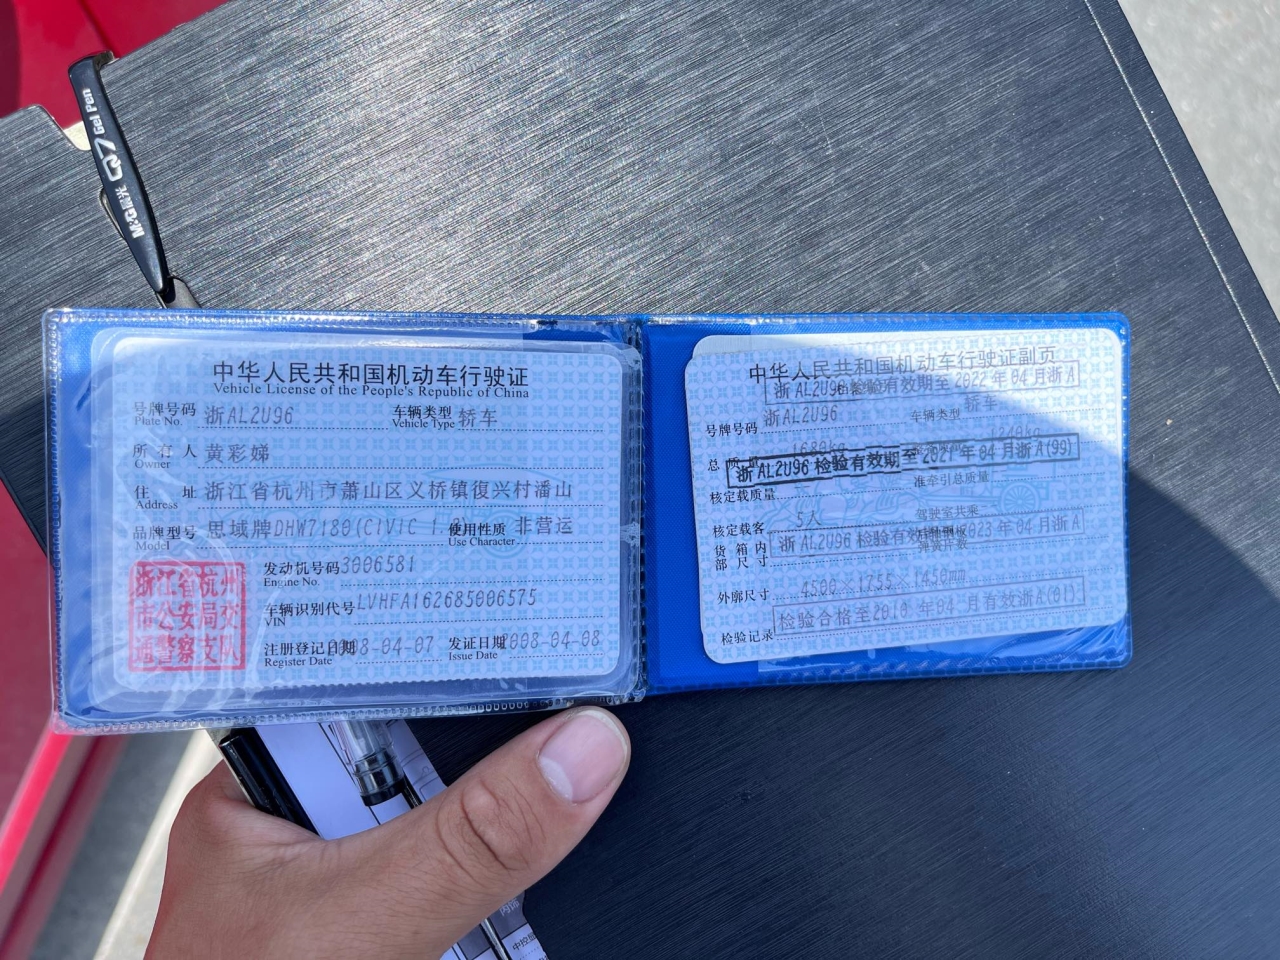 M&G晨光 Q7 Gel Pen
中华人民共和国机动车行驶证
Vehicle License of the People's Republic of China
号牌号码 浙AL2U96 车辆类型 轿车
Plate No. Vehicle Type
所有人 黄彩娣
Owner
住址 浙江省杭州市萧山区义桥镇復兴村潘山
Address
品牌型号 思域牌DHW7180(CIVIC 1.8) 使用性质 非营运
Model Use Character
浙江省杭州
市公安局交
通警察支队
发动机号码 3006581
Engine No.
车辆识别代号 LVHFA162685006575
VIN
注册登记日期 2008-04-07 发证日期 2008-04-08
Register Date Issue Date
中华人民共和国机动车行驶证副页
浙AL2U96 检验有效期至2022年04月浙A
号牌号码 浙AL2U96 车辆类型 轿车
总质量 1680kg 1240kg
浙AL2U96 检验有效期至2021年04月浙A(99)
核定载质量 准牵引总质量
核定载客 5人 驾驶室共乘
浙AL2U96 检验有效期至2023年04月浙A
货箱内部尺寸 后轴钢板弹簧片数
外廓尺寸 4500×1755×1450mm
检验合格至2010年04月有效浙A(01)
检验记录
中控